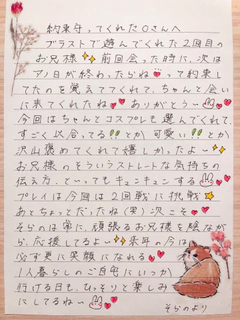 約束守ってくれたOさんへ
プラストで遊んでくれた2回目の
お兄様✨前回会った時に、次は
アノ日が終わったらね💕って約束し
てたのを覚えててくれて、ちゃんと会い
に来てくれたね💕ありがとう〜🐰💕
今回はちゃんとコスプレも選んでくれて、
すごく似合ってる!!とか可愛い!!とか
沢山褒めてくれて嬉しかったよ〜✨
お兄様のそういうストレートな気持ちの
伝え方、と〜ってもキュンキュンする
プレイは今回は2回戦に挑戦
あとちょっとだったね(笑)次こそ💕
そらのは常に、頑張るお兄様を陰なが
ら、応援してるよ〜✨来年の今は
必ず更に笑顔になれる
1人暮らしのご自宅にいつか
行ける日も、ひっそりと楽しみ
にしてるね〜🐰💕
そらのより